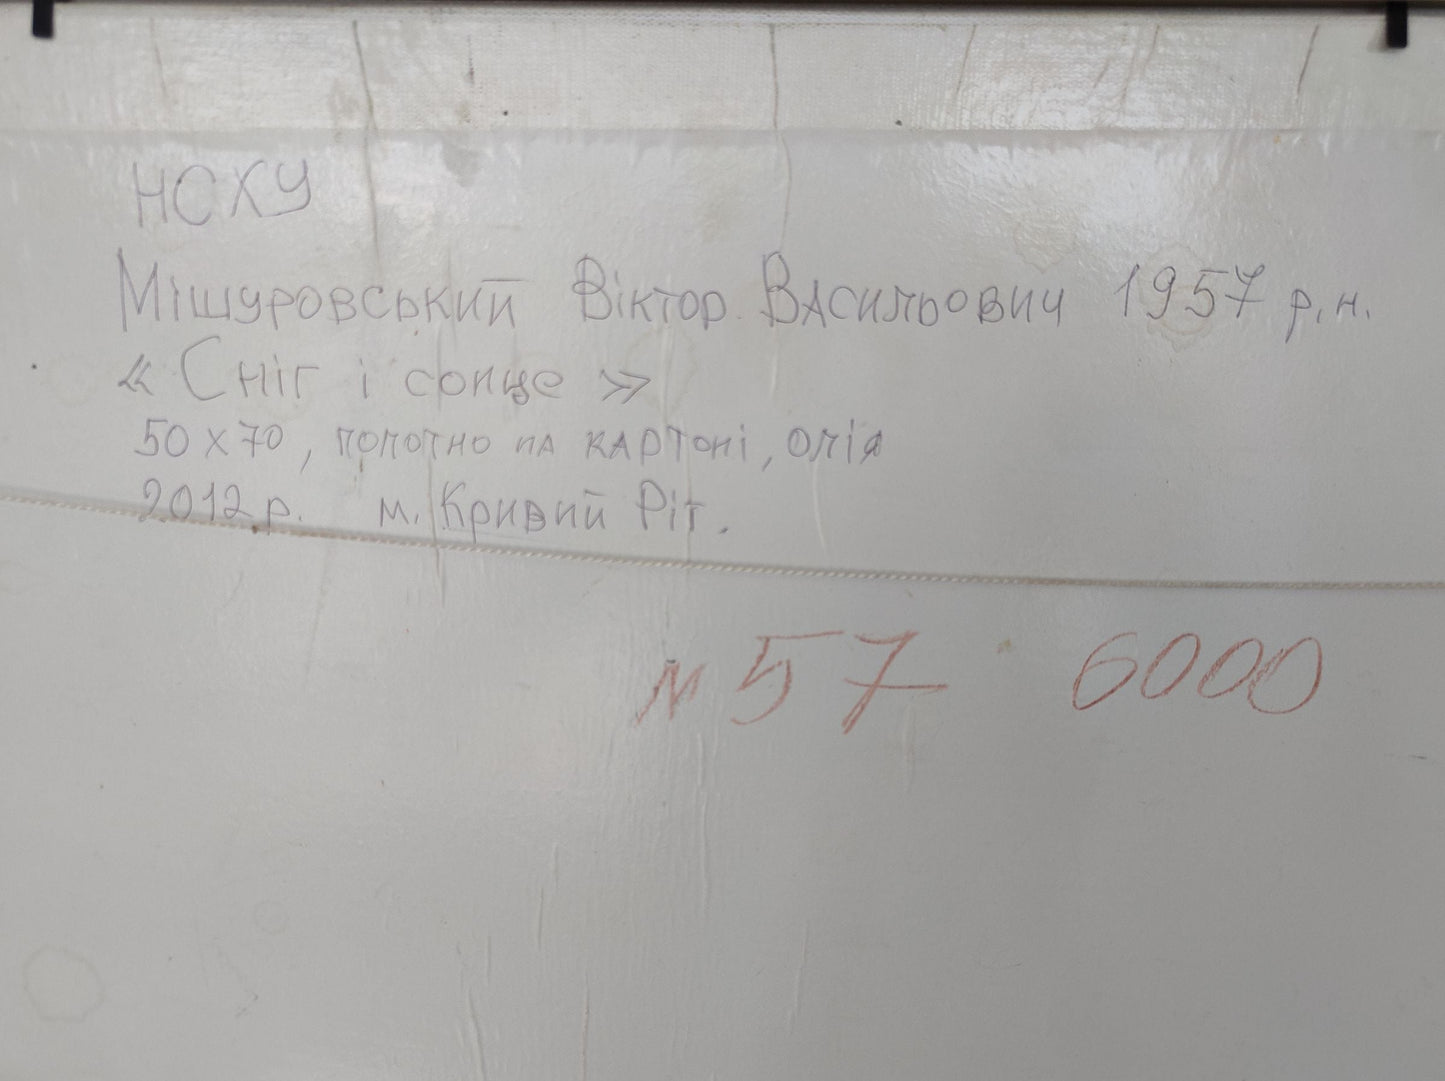 НСХУ
Мішуровський Віктор Васильович 1957 р.н.
« Сніг і сонце »
50 х 70, полотно на картоні, олія
2012 р. м. Кривий Ріг.
№ 57 6000